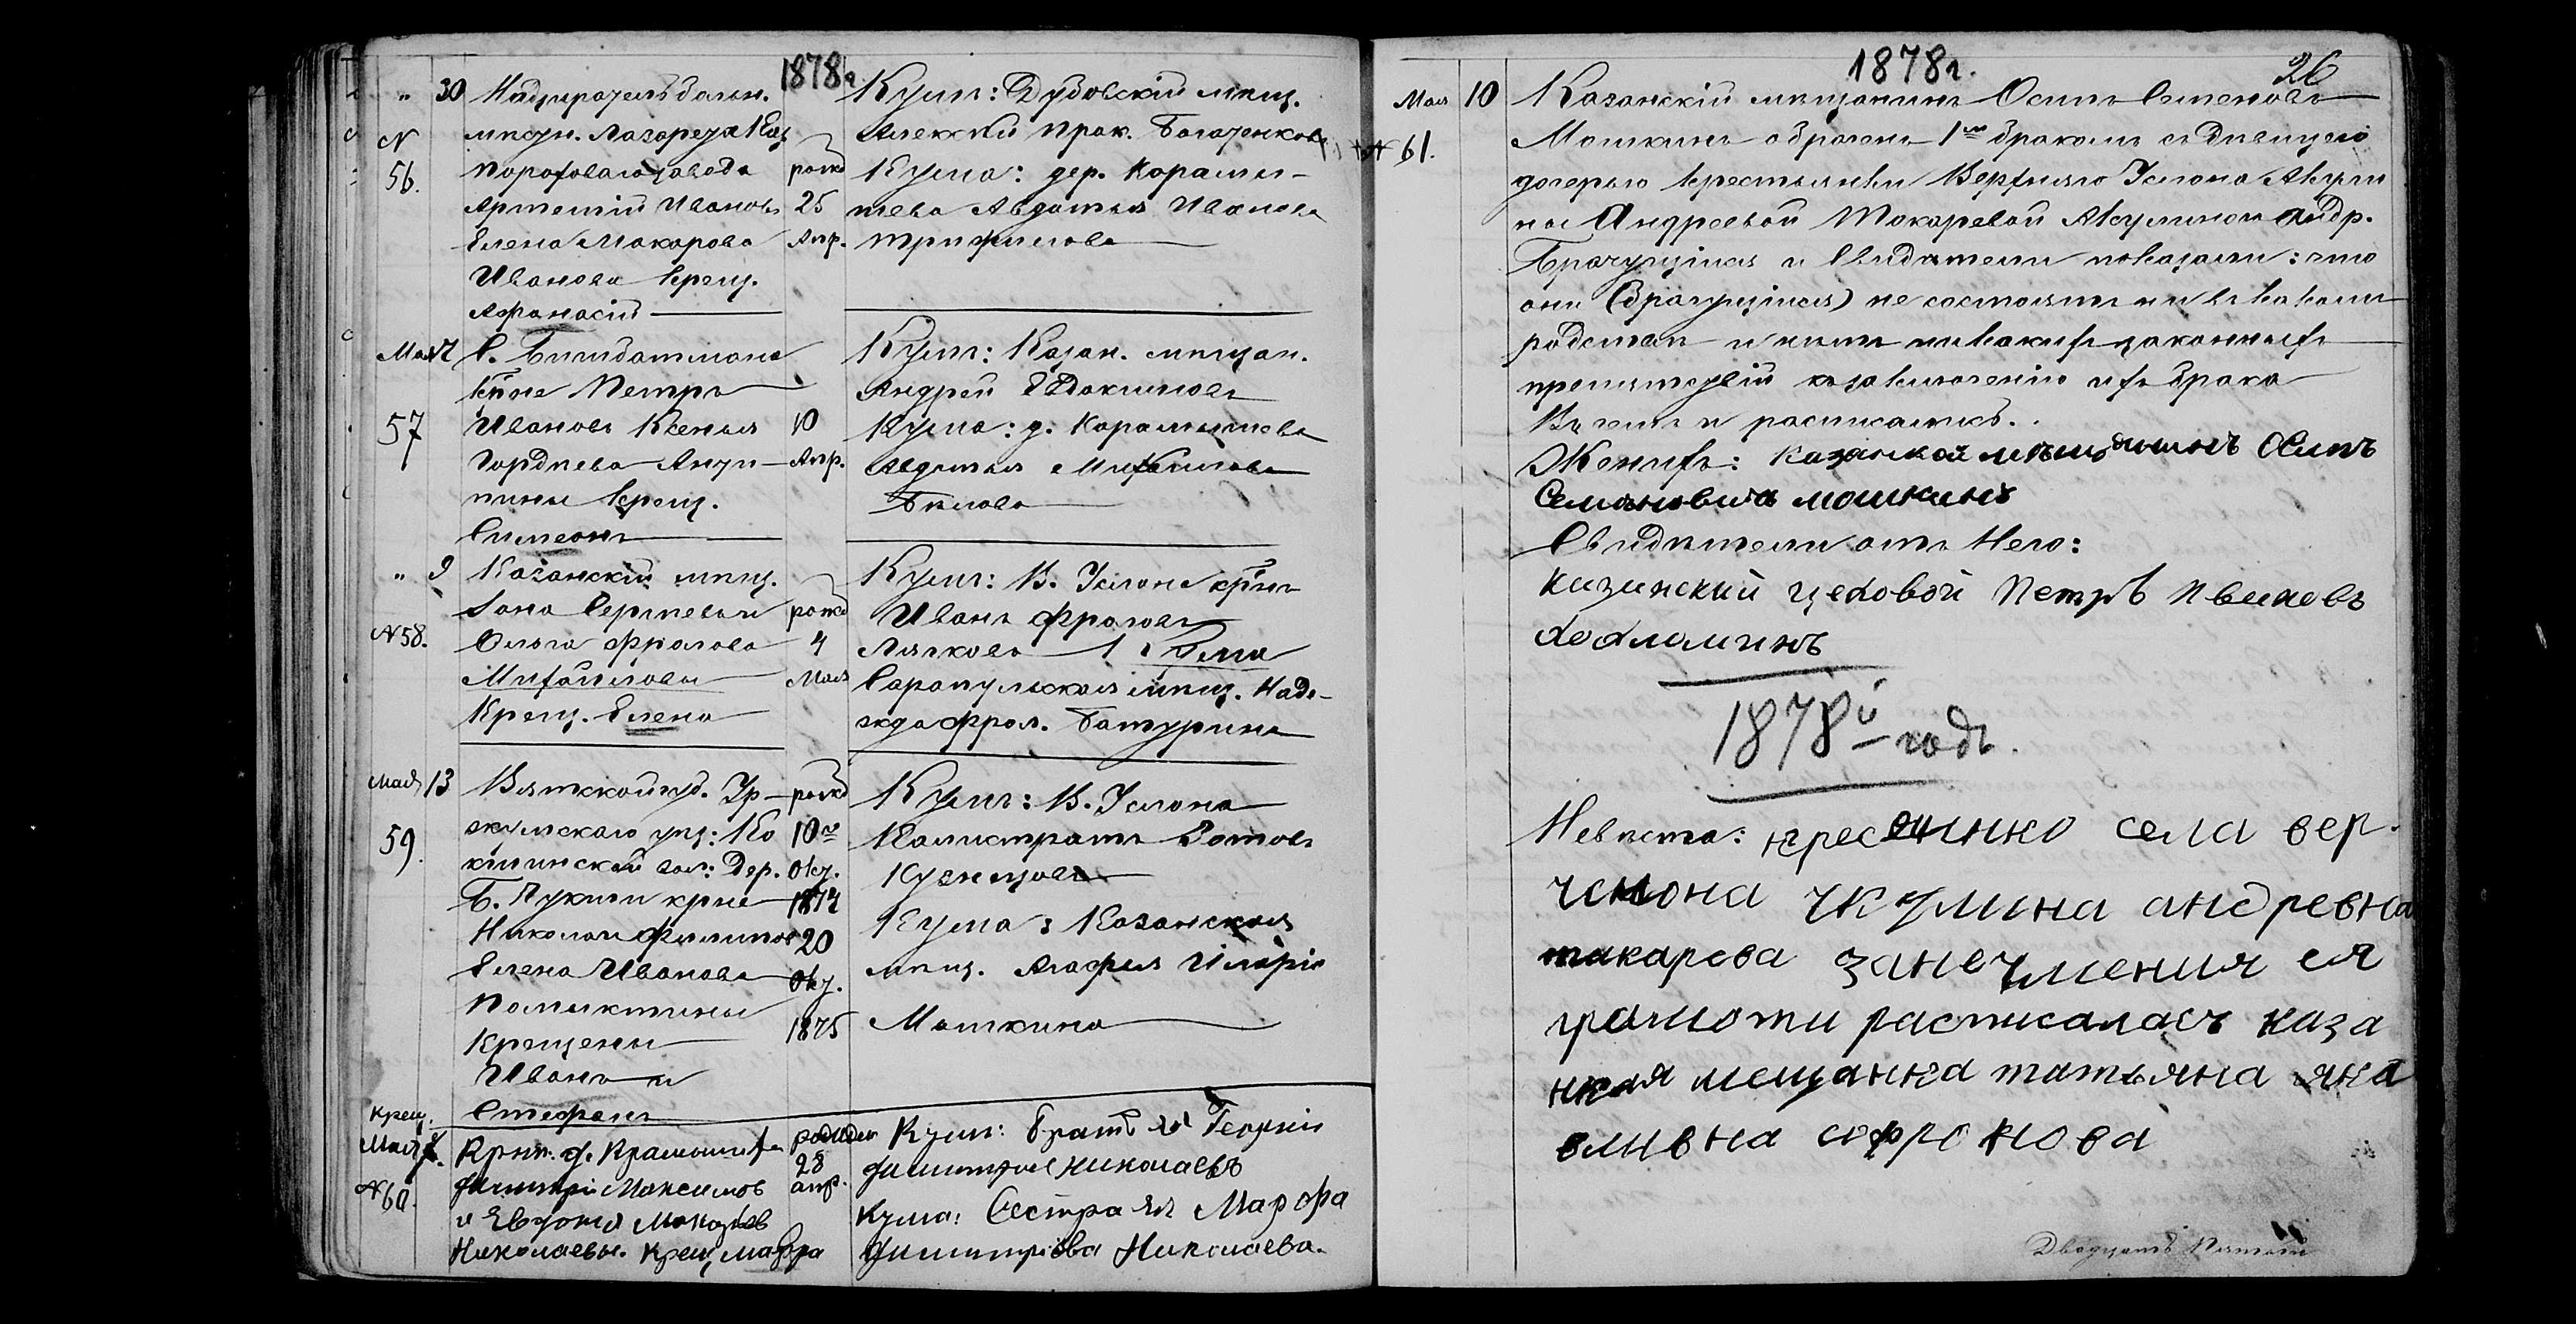 1878г.
" 30 Надзирателъ больн.
N 56.
мѣсун. Лазарета Каз.
Пороховаго завода
Артемій Ивановъ
Елена Макарова
Иванова крещ.
Афанасій
рожд
25
Апр.
Кумъ: Дубовскій мѣщ.
Алексѣй Прок. Богатенковъ
Кума: дер. Карамы-
шева Авдотья Иванова
Трифилова
Мая 7
57
С. Бишбатмана
кр̃не Петръ
Ивановъ Ксенья
Гордѣева
крещ.
Симеонъ
10
Апр.
Кумъ: Казан. мѣщан.
Андрей Евдокимовъ
Кума: д. Карамышева
Авдотья Михайлова
Бѣлова
" 9
N 58.
Казанскій мѣщ.
Сергѣевъ и
Ольга Фролова
Михайловы
Крещ. Елена
рожд
4
Мая
Кумъ: В. Услона кр̃нъ
Иванъ Фроловъ
Лячковъ Кума
Сарапульская мѣщ. Наде-
жда Фрол. Батурина
Мая 13
59.
Вятской губ. Ур-
жумскаго уѣз: Ко
кшинской вол: Дер.
Б. Пукти кр̃не
Николай Филипов
Елена Иванова
Полыктины
Крещены
Иванъ и
Стефанъ
рожд
10го
Окт.
1874
20
Окт.
1875
Кумъ: В. Услона
Калистратъ Зотовъ
Кузнецовъ
Кума: Казанская
мѣщ. Агафья Иларіо
Мошкина
Крещ.
Мая
N 60.
Крнъ. д.
Димитрій Максимов
и Евдокія
Николаевы. Крещ. Марфа
родилась
28
апр.
Кумъ: братъ ея Георгій
Димитріе Николаевъ
Кума: Сестра ея Марфа
Димитріева Николаева.
1878г.
26
Мая 10
N 61.
Казанскій мѣщанинъ Осипъ Семеновъ
Мошкинъ обрачен 1мъ бракомъ съ дѣвицею
дочерью крестьянки Верхняго Услона Акули
ны Андреевой Токаревой Акулиною Андр.
Брачущіися и Свидѣтели показали: что
они (брачущіися) не состоятъ ни въ какомъ
родствѣ и нѣтъ никакихъ законныхъ
препятствій къ заключенію ихъ брака
Въ чемъ и росписались.
Женихъ: Казанской мѣщанинъ Осипъ
Семяновичъ мошкинъ
Свидѣтели отъ Него:
казинский цеховой Петръ Ивановъ
1878й годъ.
Невѣста: кресянка села вер.
услона акулина андревна
такарева занеумения ея
грамоти расписаласъ каза
нкая мещанка татьяна
софронова
Двадцать Шестой